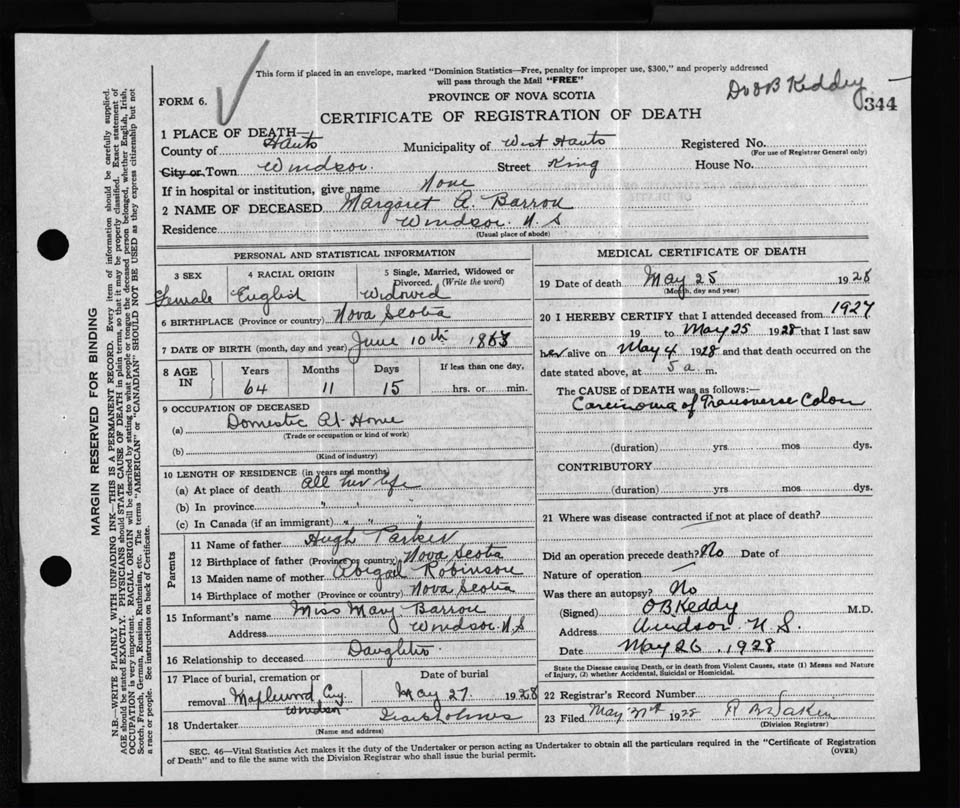 This form if placed in an envelope, marked "Dominion Statistics—Free, penalty for improper use, $300," and properly addressed
will pass through the Mail "FREE"
Dr O B Keddy
FORM 6.
PROVINCE OF NOVA SCOTIA
344
CERTIFICATE OF REGISTRATION OF DEATH
1 PLACE OF DEATH—
County of Hants Municipality of West Hants Registered No.
(For use of Registrar General only)
City or Town Windsor. Street King House No.
If in hospital or institution, give name None
2 NAME OF DECEASED Margaret A. Barron
Residence Windsor. N. S
(Usual place of abode)
PERSONAL AND STATISTICAL INFORMATION
3 SEX 4 RACIAL ORIGIN 5 Single, Married, Widowed or Divorced. (Write the word)
Female English Widowed
6 BIRTHPLACE (Province or country) Nova Scotia
7 DATE OF BIRTH (month, day and year) June 10th 1863
8 AGE IN Years Months Days If less than one day,
64 11 15 hrs. or min.
9 OCCUPATION OF DECEASED
(a) Domestic At Home
(Trade or occupation or kind of work)
(b)
(Kind of industry)
10 LENGTH OF RESIDENCE (in years and months)
(a) At place of death all her life
(b) In province " " "
(c) In Canada (if an immigrant) " " "
Parents
11 Name of father Hugh Parker
12 Birthplace of father (Province or country) Nova Scotia
13 Maiden name of mother Abigail Robinson
14 Birthplace of mother (Province or country) Nova Scotia
15 Informant's name Miss May Barron
Address Windsor. N. S
16 Relationship to deceased Daughter.
17 Place of burial, cremation or Date of burial
removal Maplewood Cny. Windsor May 27 1928
18 Undertaker
(Name and address)
MEDICAL CERTIFICATE OF DEATH
19 Date of death May 25 1928
(Month, day and year)
20 I HEREBY CERTIFY that I attended deceased from 1927
19 to May 25 1928 that I last saw
her alive on May 4 1928 and that death occurred on the
date stated above, at 5 a m.
The CAUSE OF DEATH was as follows:—
Carcinoma of Transverse Colon
(duration) yrs. mos dys.
CONTRIBUTORY
(duration) yrs mos dys.
21 Where was disease contracted if not at place of death?
Did an operation precede death? No Date of
Nature of operation
Was there an autopsy? No
(Signed) O B Keddy M.D.
Address Windsor. N. S.
Date May 26, 1928
State the Disease causing Death, or in death from Violent Causes, state (1) Means and Nature
of Injury, (2) whether Accidental, Suicidal or Homicidal.
22 Registrar's Record Number
23 Filed May 1928
(Division Registrar)
SEC. 46—Vital Statistics Act makes it the duty of the Undertaker or person acting as Undertaker to obtain all the particulars required in the "Certificate of Registration
of Death" and to file the same with the Division Registrar who shall issue the burial permit.
(OVER)
MARGIN RESERVED FOR BINDING
N.B.—WRITE PLAINLY WITH UNFADING INK—THIS IS A PERMANENT RECORD. Every item of information should be carefully supplied.
AGE should be stated EXACTLY. PHYSICIANS should STATE CAUSE OF DEATH in plain terms, so that it may be properly classified. Exact statement of
OCCUPATION is very important. RACIAL ORIGIN will be described by stating to what people or tongue the deceased person belonged, whether English, Irish,
Scotch, French, German, Russian, Ruthenian, etc. The terms "AMERICAN" or "CANADIAN" SHOULD NOT BE USED as they express citizenship but not
a race or people. See instructions on back of Certificate.